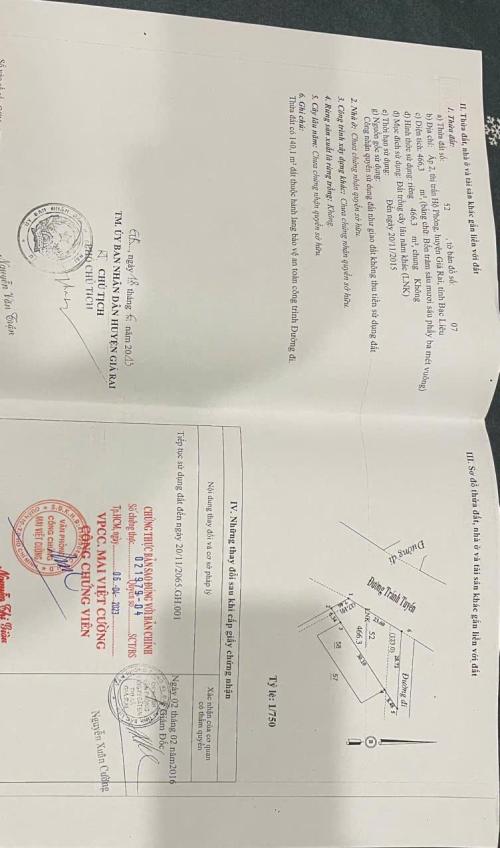 II. Thửa đất, nhà ở và tài sản khác gắn liền với đất
1. Thửa đất:
a) Thửa đất số: 52 tờ bản đồ số: 07
b) Địa chỉ: Ấp 2, thị trấn Hộ Phòng, huyện Giá Rai, tỉnh Bạc Liêu
c) Diện tích: 466.3 m², (bằng chữ: Bốn trăm sáu mươi sáu phẩy ba mét vuông)
d) Hình thức sử dụng: riêng 466.3 m², chung Không
đ) Mục đích sử dụng: Đất trồng cây lâu năm khác (LNK)
e) Thời hạn sử dụng: Đến ngày 20/11/2015
g) Nguồn gốc sử dụng:
Công nhận quyền sử dụng đất như giao đất không thu tiền sử dụng đất
2. Nhà ở: Chưa chứng nhận quyền sở hữu.
3. Công trình xây dựng khác: Chưa chứng nhận quyền sở hữu.
4. Rừng sản xuất là rừng trồng: Không
5. Cây lâu năm: Chưa chứng nhận quyền sở hữu.
6. Ghi chú:
Thửa đất có 140,1 m² đất thuộc hành lang bảo vệ an toàn công trình Đường đi.
ngày 18 tháng 6 năm 2013
TM. ỦY BAN NHÂN DÂN HUYỆN GIÁ RAI
KT CHỦ TỊCH
PHÓ CHỦ TỊCH
Nguyễn Văn
III. Sơ đồ thửa đất, nhà ở và tài sản khác gắn liền với đất
Đường đi
Đường Tránh Tuyến
Đường đi
52
LNK
466.3
58
57
Tỷ lệ: 1/750
IV. Những thay đổi sau khi cấp giấy chứng nhận
Nội dung thay đổi và cơ sở pháp lý
Xác nhận của cơ quan
có thẩm quyền
Tiếp tục sử dụng đất đến ngày 20/11/2065.GH.001
Ngày 02 tháng 02 năm2016
Giám Đốc
Nguyễn Xuân Cường
CHỨNG THỰC BẢN SAO ĐÚNG VỚI BẢN CHÍNH
Số chứng thực: 021979-04 Quyển số SCT/BS
Tp.HCM, ngày 06-04-2023
VPCC. MAI VIỆT CƯỜNG
CÔNG CHỨNG VIÊN
VĂN PHÒNG
CÔNG CHỨNG
MAI VIỆT CƯỜNG
Nguyễn Thị